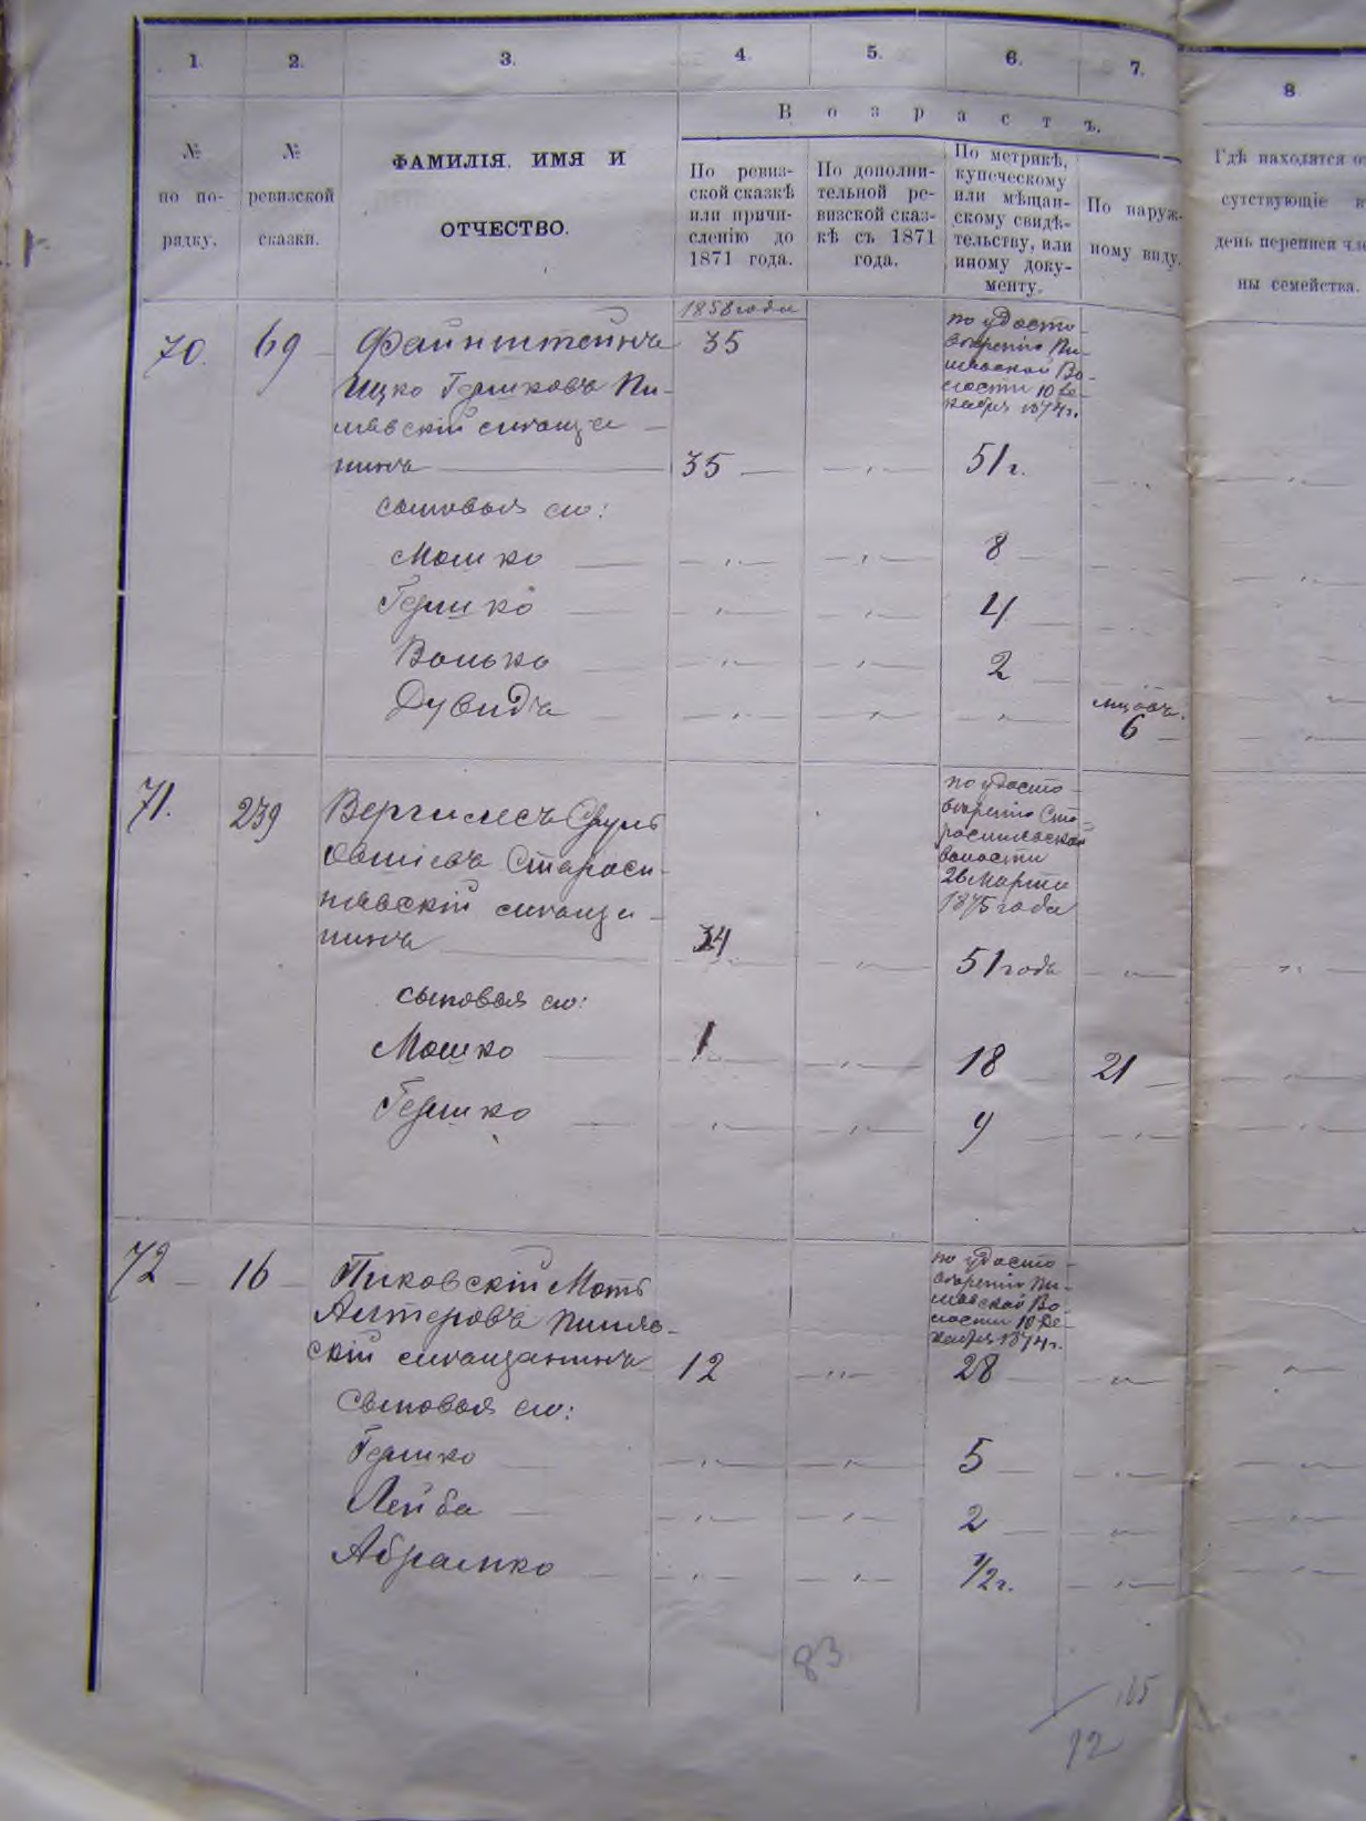 1. 2. 3. 4. 5. 6. 7. 8
№ по по-
рядку.
№
ревизской
сказки.
ФАМИЛІЯ, ИМЯ И
ОТЧЕСТВО.
Возрастъ.
По ревиз-
ской сказкѣ
или причи-
сленію до
1871 года.
По дополни-
тельной ре-
визской сказ-
кѣ съ 1871
года.
По метрикѣ,
купеческому
или мѣщан-
скому свидѣ-
тельству, или
иному доку-
менту.
По наруж-
ному виду.
Гдѣ находятся от
сутствующіе въ
день переписи чле
ны семейства.
1858 года
70. 69 Файнштейнъ 35
Ицко Гершковъ Пи-
лявскій мѣщани-
нинъ 35 51 г.
по удосто-
веренію Пи-
лявской Во-
лости 10 де-
кабря 1874 г.
сыновья его:
Мошко 8
Гершко 4
Волько 2
Дувидъ мѣсяц. 6
71. 239 Вергилесъ Сруль
Овшіевъ Староси-
нявскій мѣщани-
нинъ 34 51 годъ
по удосто-
веренію Ста-
росинявской
волости
26 Марта
1875 года
сыновья его:
Мошко 1 18 21
Гершко 9
72 16 Пиковскій Моть
Алтеровъ Пиляв-
скій мѣщанинъ 12 28
по удосто-
веренію Пи-
лявской Во-
лости 10 Де-
кабря 1874 г.
Сыновья его:
Гершко 5
Лейба 2
Абрамко 1/2 г.
83
12